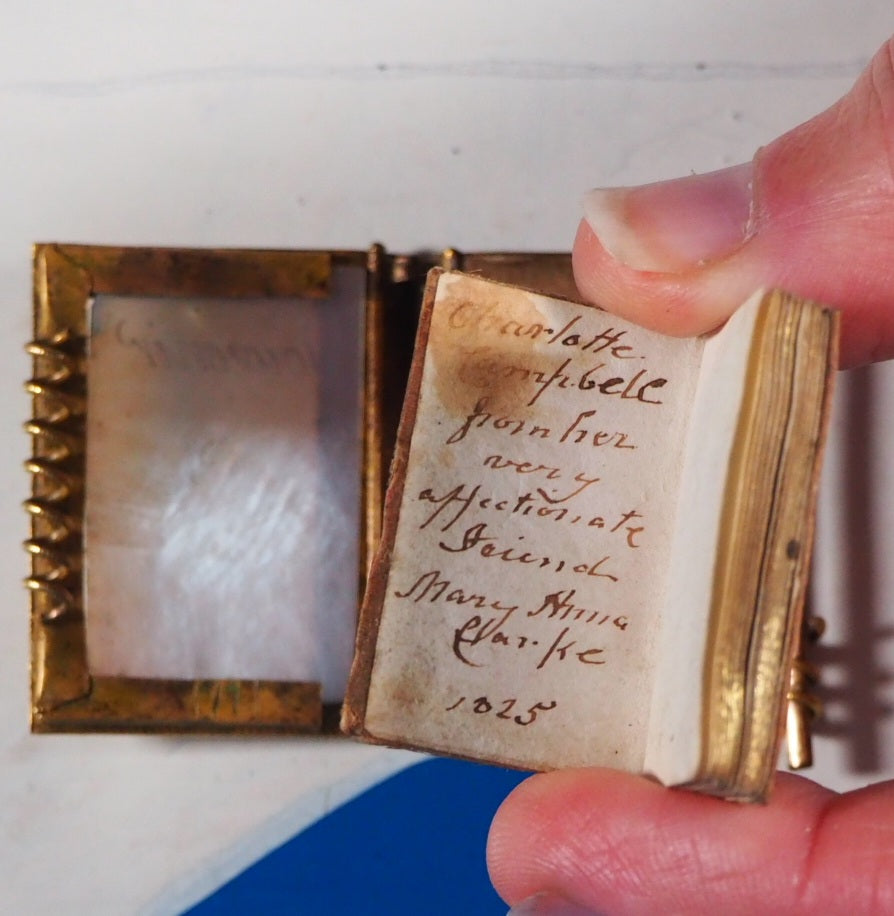 Charlotte
Campbell
from her
very
affectionate
Friend
Mary Anna
Clarke
1825